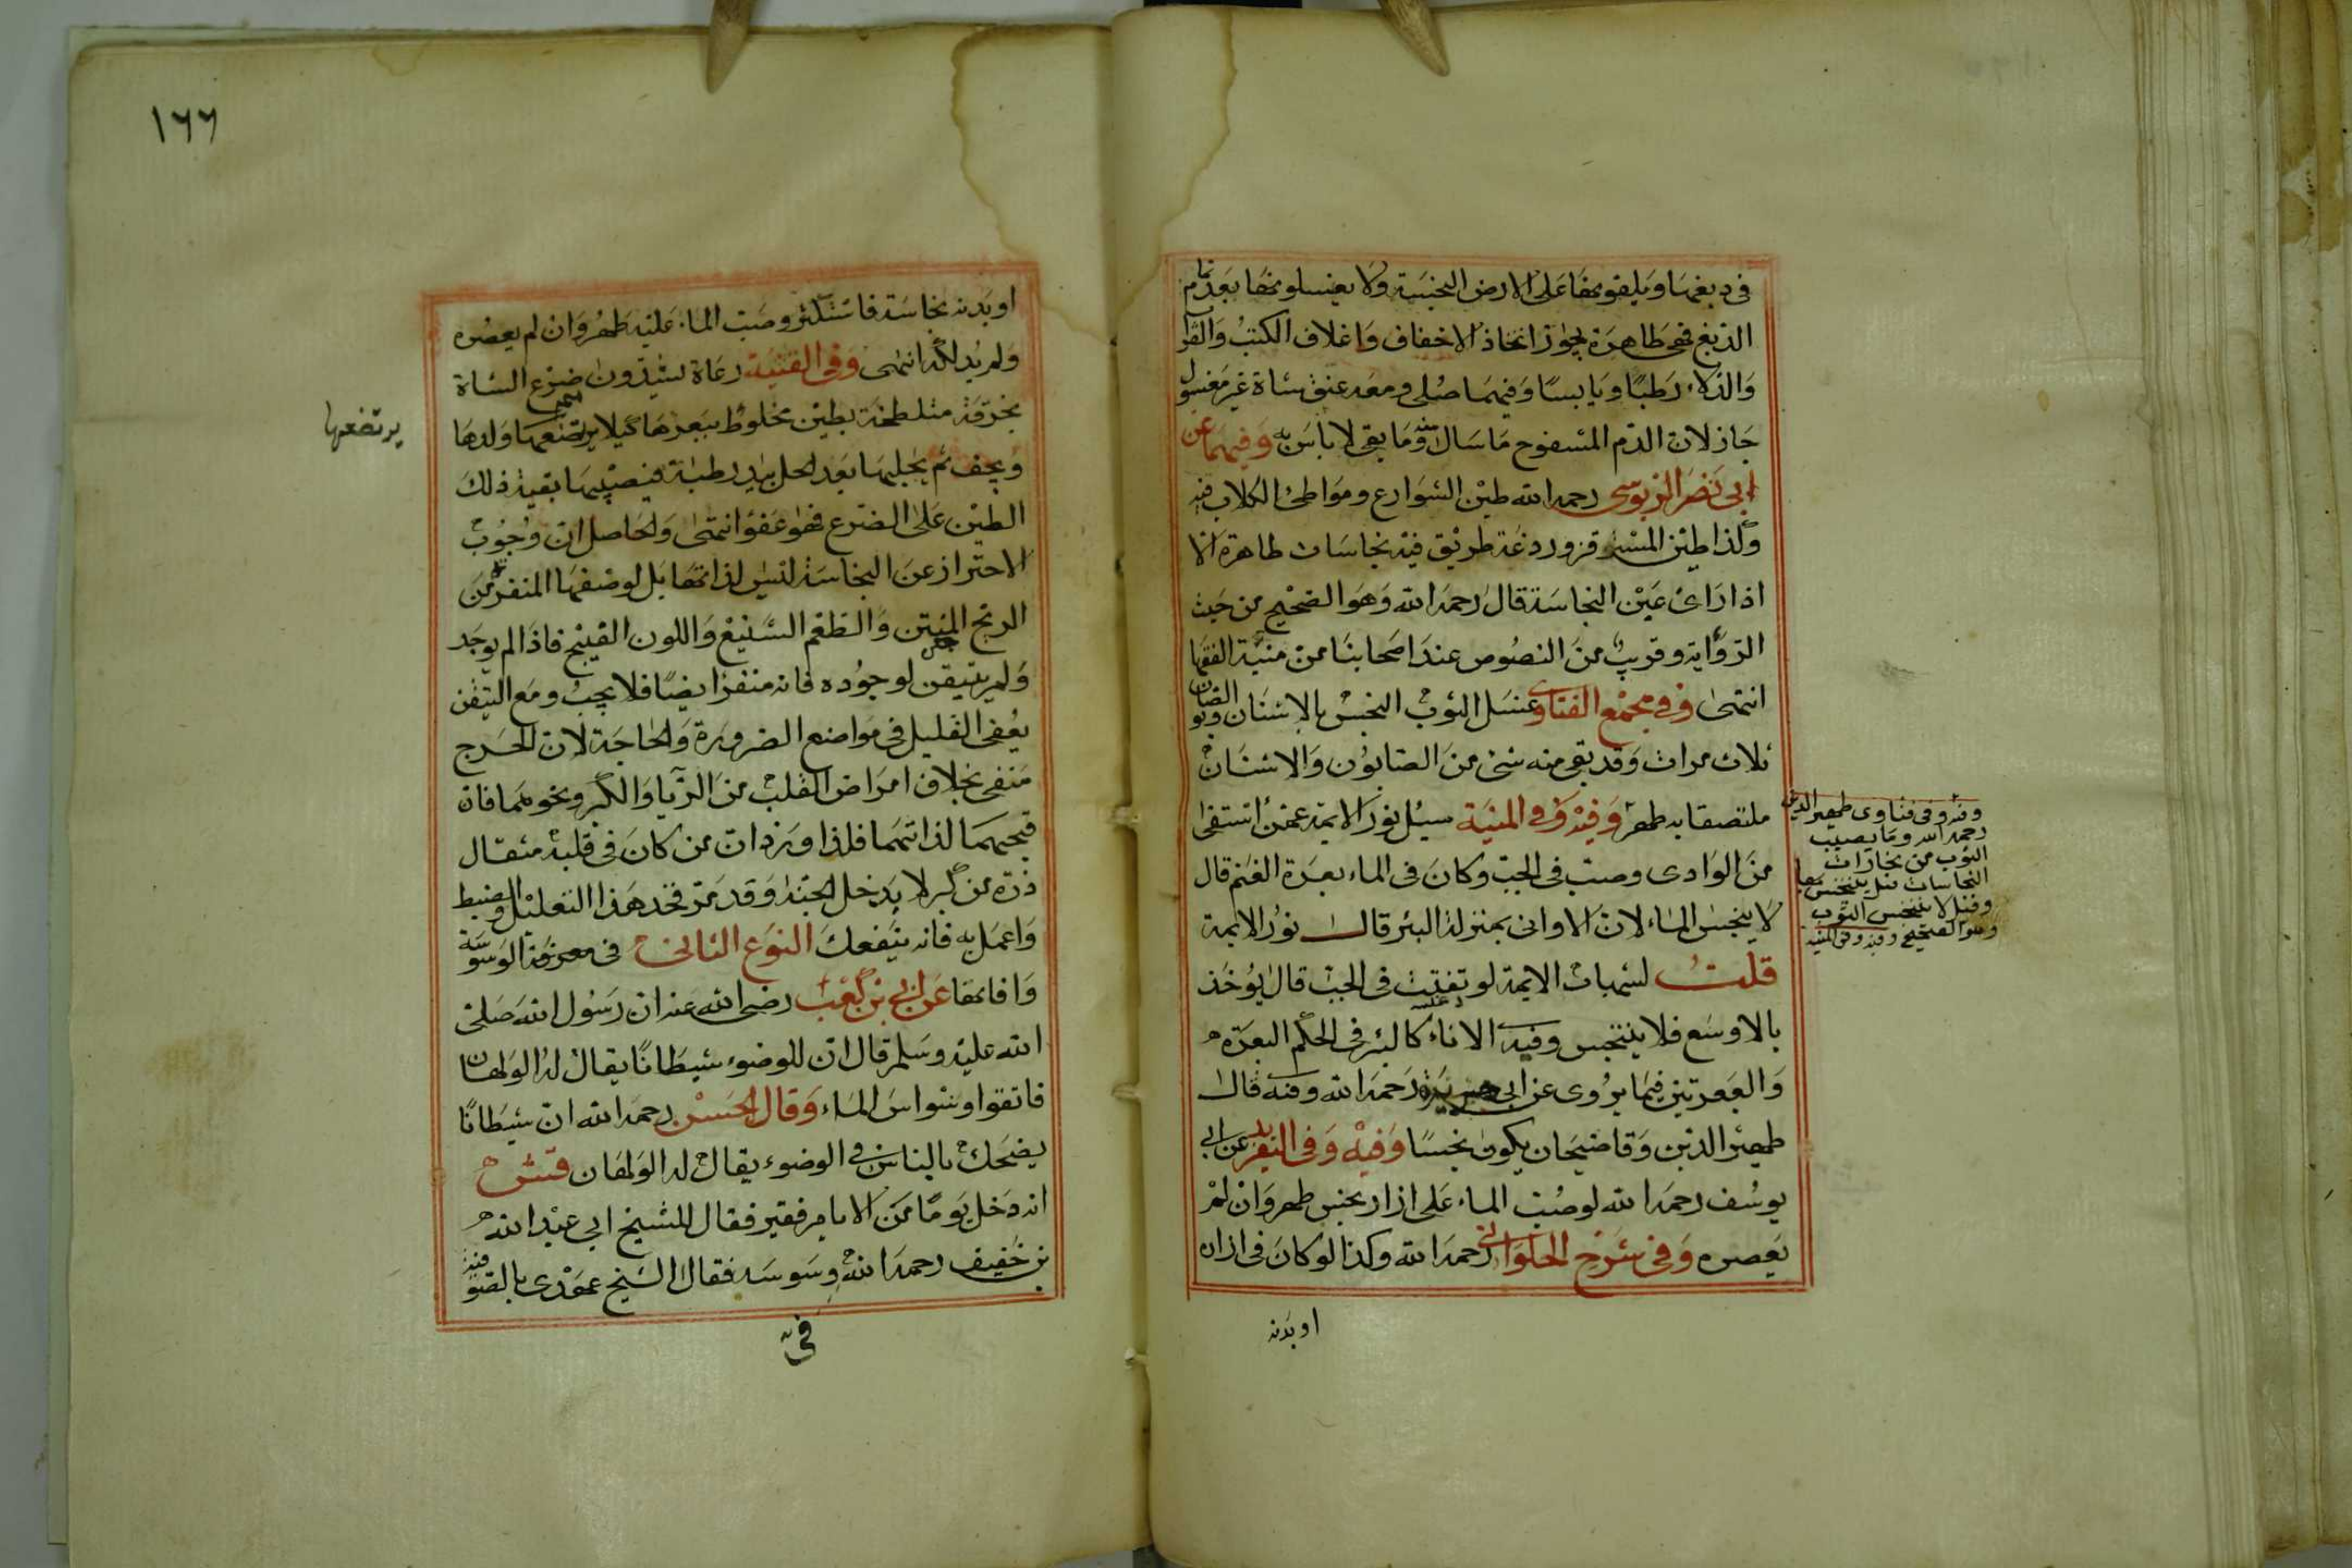 في دبغها ويلقونها على الارض النجسة ولا يغسلونها بعد تمام
الدبغ فهي طاهرة يجوز اتخاذ الاخفاف واغلاف الكتب والقرآن
والدلاء رطبا ويابسا وفيهما صلى ومعه عنق شاة غير مغسول
جاز لان الدم المسفوح ما سال منه وما بقى لا باس به وفيهما عن
ابي نصر الدبوسي رحمه الله طين الشوارع ومواطئ الكلاب فيه
وكذا طين المسرقن وردغة طريق فيه نجاسات طاهرة الا
اذا راى عين النجاسة قال رحمه الله وهو الصحيح من حيث
الرواية وقريب من النصوص عند اصحابنا من منية الفقها
انتهى وفي مجمع الفتاوى غسل الثوب النجس بالاشنان والصابون
ثلاث مرات وقد بقى منه شئ من الصابون والاشنان
ملتصقا به طهر وفيه وفي المنية سيل نور الايمة عمن استقى
من الوادى وصب في الجب وكان في الماء بعرة الغنم قال
لا ينجس الماء لان الاواني بمنزلة البئر قال نور الايمة
قلت لشهاب الايمة لو تفتت في الجب قال يؤخذ
بالاوسع فلا يتنجس وفيه الاناء كالبئر في الحكم البعرة
والبعرتين فيما يروى عن ابي رحمه الله ومنه قال
ظهير الدين وقاضيخان يكون نجسا وفيه وفي التفريد عن ابي
يوسف رحمه الله لو صب الماء على ازار نجس طهر وان لم
يعصره وفي شرح الحلواني رحمه الله وكذا لو كان في ازاره
وفيه وفي فتاوى ظهير الدين
رحمه الله وما يصيب
الثوب من بخارات
النجاسات قيل يتنجس بها
وقيل لا يتنجس الثوب
وهو الصحيح وفيه وفي المنية
او بدنه
١٦٦
او بدنه نجاسة فاستكثر وصب الماء عليه طهر وان لم يعصره
ولم يدلكه انتهى وفي القنية رعاة يشدون ضرع الشاة
بخرقة متلطخة بطين مخلوط ببعرها كيلا يرتضعها ولدها
ويجف ثم يحلبها بعد الحل بيد رطبة فيصيبها بقية ذلك
الطين على الضرع فهو عفو انتهى والحاصل ان وجوب
الاحتراز عن النجاسة ليس لذاتها بل لوصفها المنفر من
الريح المنتن والطعم الشنيع واللون القبيح فاذا لم يوجد
ولم يتيقن لوجوده فانه منفر ايضا فلا يجب ومع التيقن
يعفى القليل في مواضع الضرورة والحاجة لان الحرج
منفى بخلاف امراض القلب من الريا والكبر ونحوهما فان
قبحهما لذاتهما فلذا ورد ان من كان في قلبه مثقال
ذرة من كبر لا يدخل الجنة وقد مر فخذ هذا التعليل والضبط
واعمل به فانه ينفعك النوع الثاني في معرفة الوسوسة
وافاتها عن ابي بن كعب رضي الله عنه ان رسول الله صلى
الله عليه وسلم قال ان للوضوء شيطانا يقال له الولهان
فاتقوا وسواس الماء وقال الحسن رحمه الله ان شيطانا
يضحك بالناس في الوضوء يقال له الولهان قش
انه دخل يوما من الايام فقير فقال للشيخ ابي عبد الله
بن خفيف رحمه الله وسوسه فقال الشيخ عهدى بالصوفية
يرتضعها
في